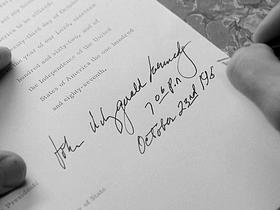 enty third day of October
year of our Lord, nineteen
hundred and sixty-two, and
the Independence of the United
States of America the one hundred
and eighty-seventh.
John Fitzgerald Kennedy
7:06 p.m
October 23rd 196
President:
y of State